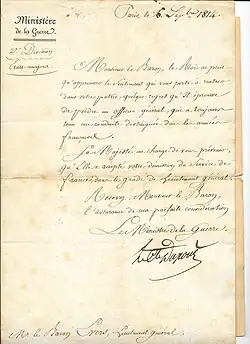 Ministère
de la Guerre.
2e Division
Paris, le 6 Septbre 1814
Monsieur le Baron, le Roi ne peut
qu'approuver le Sentiment qui vous porte à rentrer
dans votre patrie, quelque regret qu'il éprouve
de perdre un officier général qui a toujours
tenu une conduite distinguée dans les armées
françaises.
Sa Majesté me charge de vous prévenir
qu'Elle a accepté votre démission du Service de
France, dans le grade de Lieutenant général.
Recevez, Monsieur le Baron,
l'assurance de ma parfaite considération
Le Ministre de la Guerre.
Le Cte Dupont
Mr. le Baron Lieutenant général.